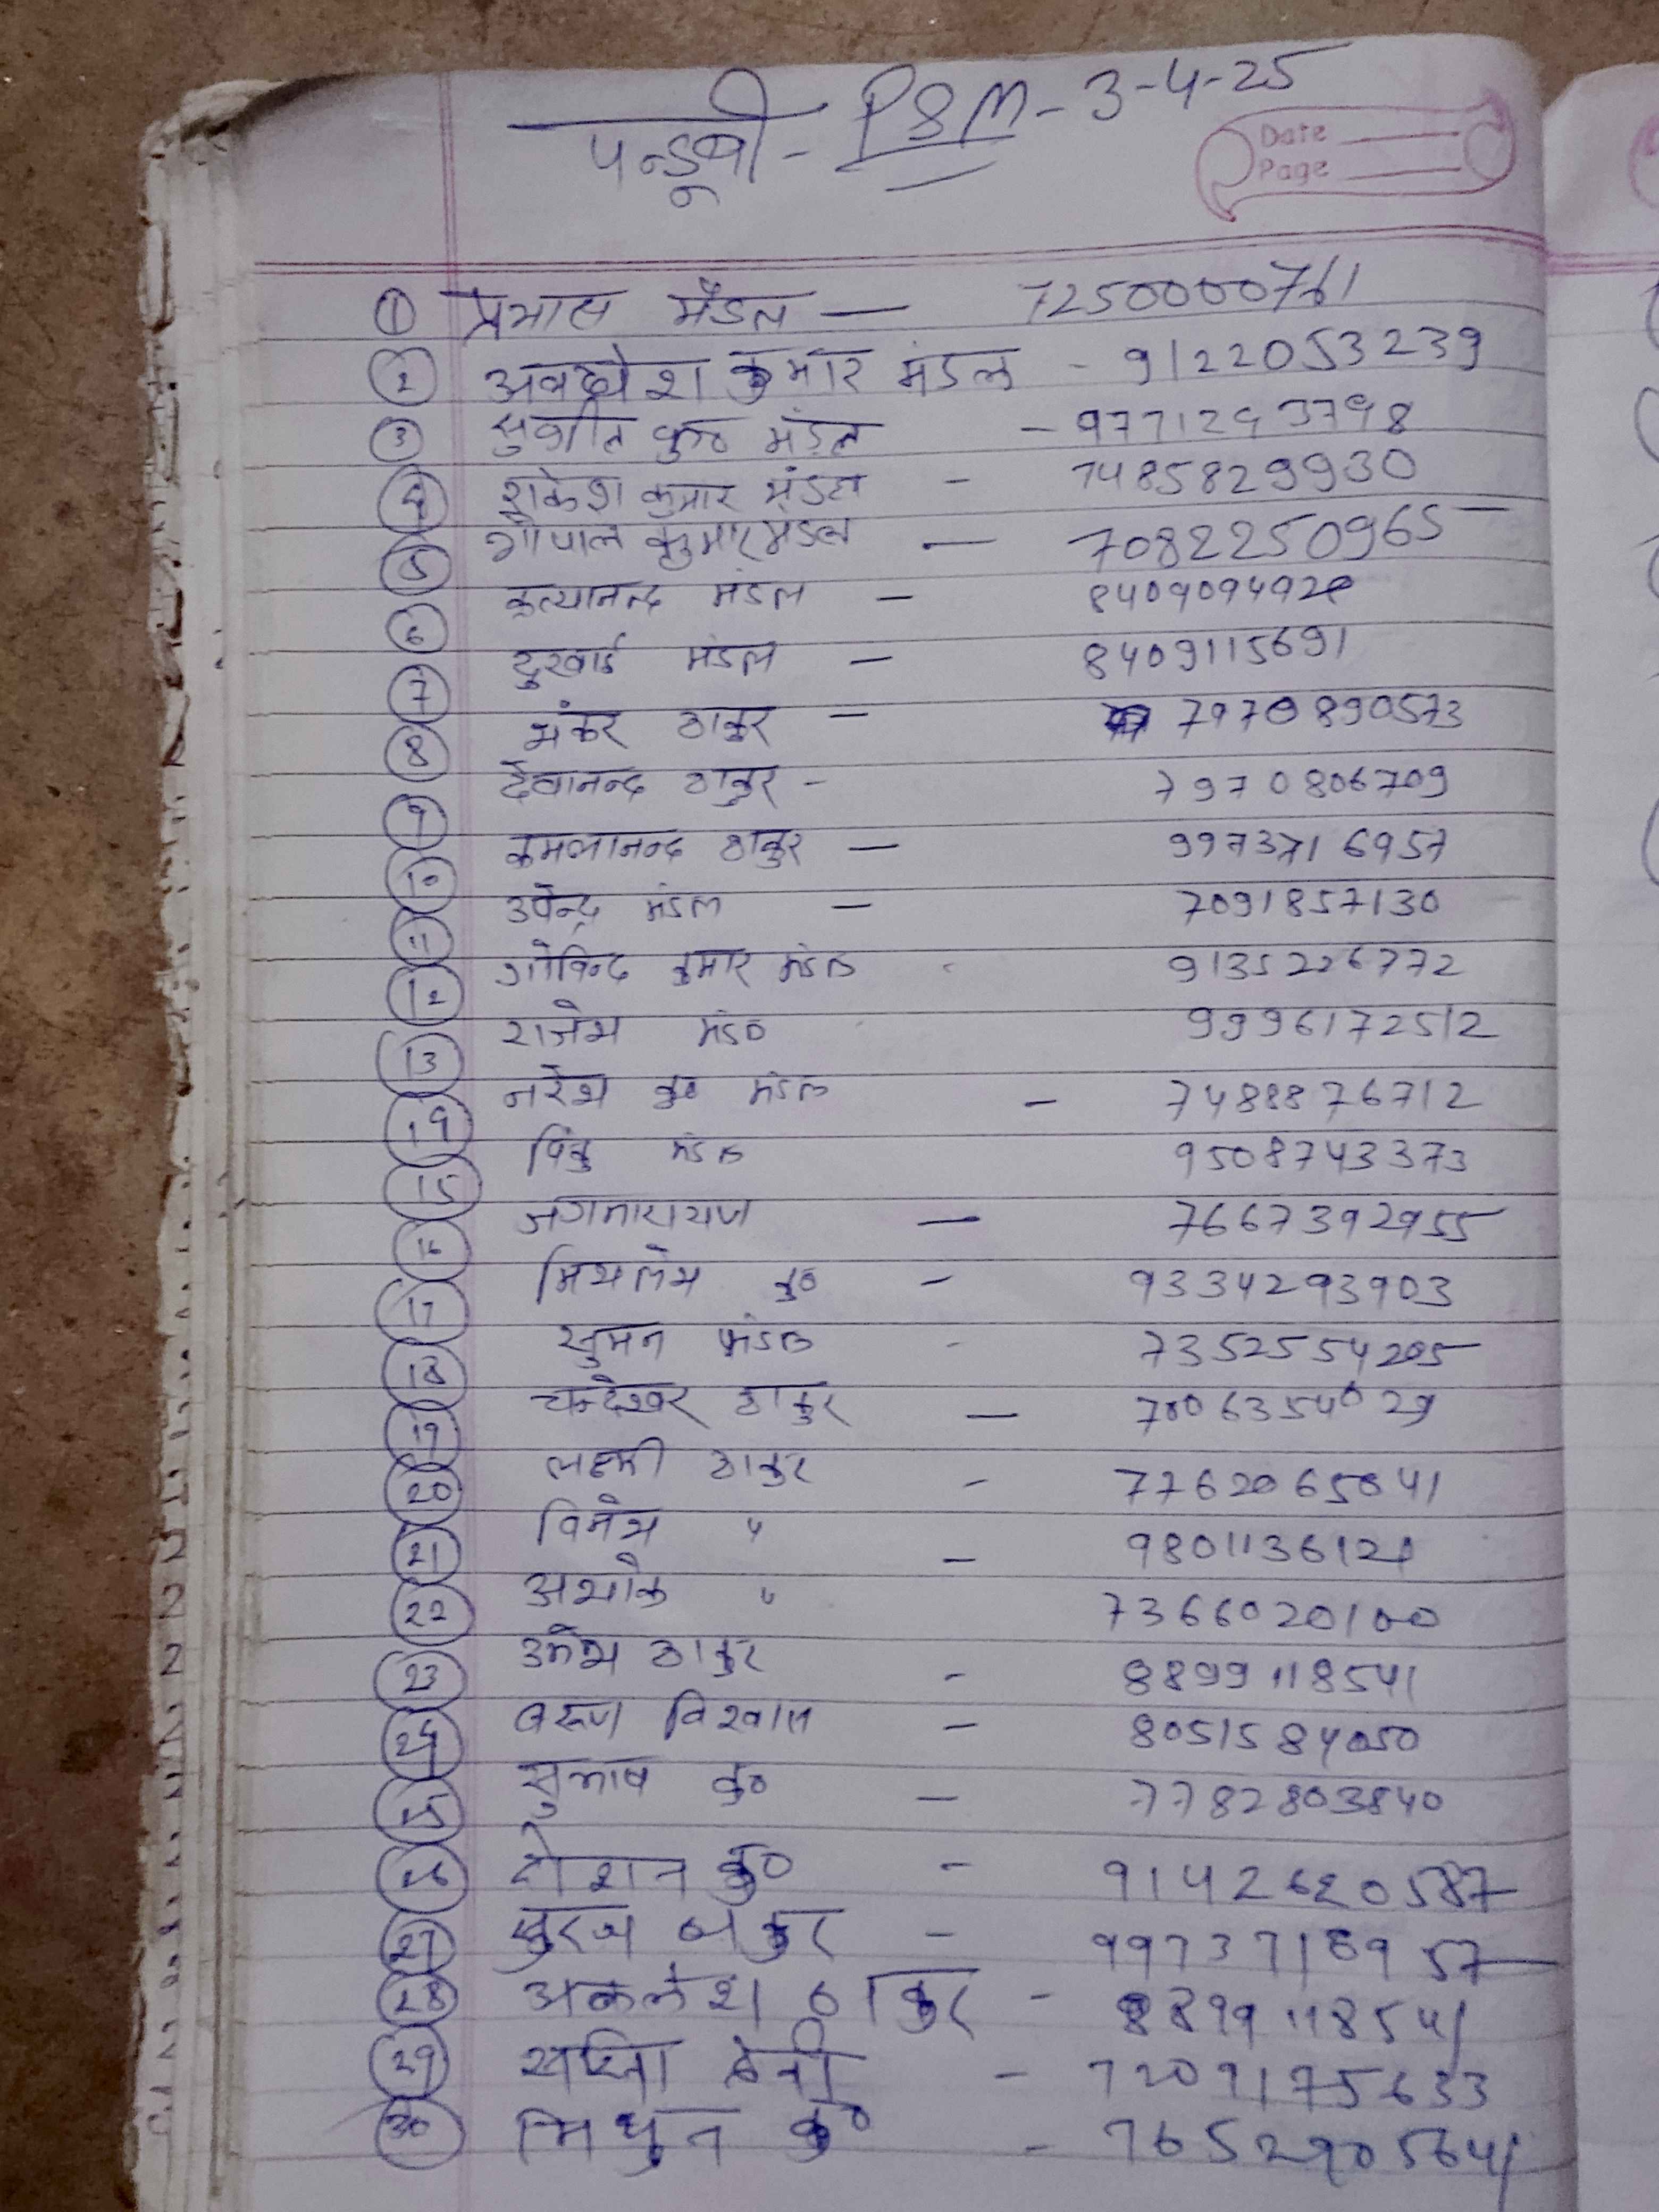 पन्डूबी - PSM - 3-4-25
Date
Page
1 प्रभास मंडल — 7250000761
2 अवधेश कुमार मंडल - 9122053239
3 सुशील कु० मंडल -
4 राकेश कुमार मंडल - 7485829930
5 गोपाल कुमार मंडल — 7082250965
6 कृत्यानन्द मंडल —
7 दुखाई मंडल — 8409115691
8 शंकर ठाकुर — 7970890573
9 देवानन्द ठाकुर - 7970806709
10 कमलानन्द ठाकुर — 9973716957
11 उपेन्द्र मंडल — 7091857130
12 गोविन्द कुमार मंडल 9135226772
13 राजेश मंड० 9996172512
14 नरेश कु० मंडल - 7488876712
15 पिंकु मंडल 9508743373
16 जगनारायण — 7667392955
17 मिथलेश कु० - 9334293903
18 सुमन मंडल - 7352554205
19 चन्देश्वर ठाकुर — 7006354029
20 लक्ष्मी ठाकुर - 7762065041
21 विमेश " -
22 अशोक " 7366020100
23 उमेश ठाकुर - 8899118541
24 वरूण विश्वास - 8051584050
25 सुभाष कु० — 7782803840
26 रोशन कु० - 9142620587
27 सुरज ठाकुर - 9973718957
28 अकलेश ठाकुर - 8899118541
29 देवी - 7209175633
30 मिथुन कु० - 7652905641